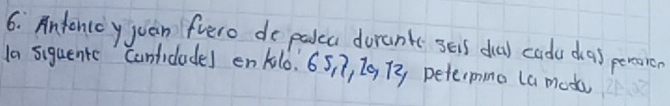 6. Antonio y juan fuero de pesca durante seis dias cada dias pescaron
la siguente Cantidades en kilo. 6 5, 7, 10, 12, Determino la moda